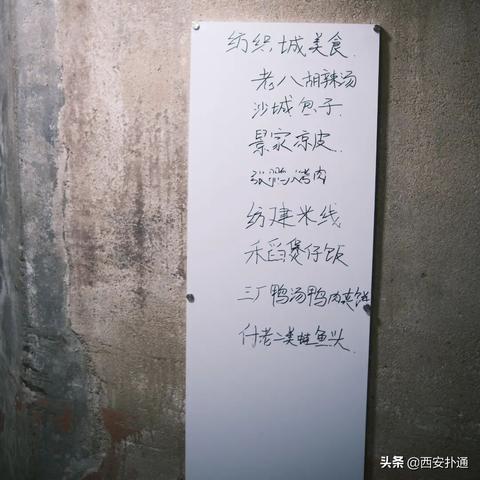 纺织城美食
老八胡辣汤
沙城鱼子
景家凉皮
烤肉
纺建米线
禾稻煲仔饭
三厂鸭汤鸭肉夹饼
付老二美蛙鱼头
头条 @西安扑通